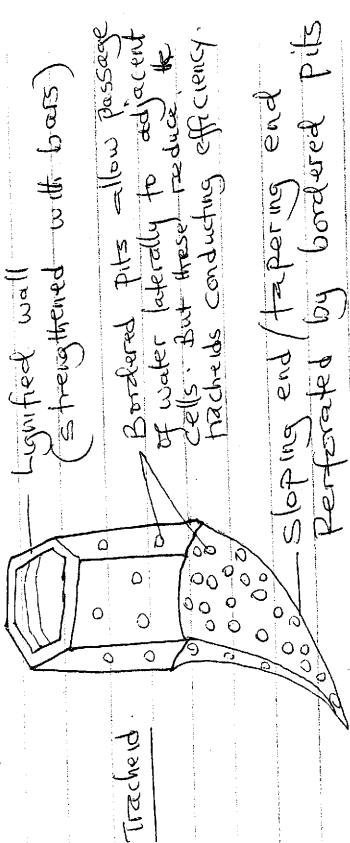 Tracheid.
Lignified wall
(strengthened with bars)
Bordered pits allow passage
of water laterally to adjacent
cells. But these reduce the
tracheids conducting efficiency.
Sloping end/tapering end
Perforated by bordered pits